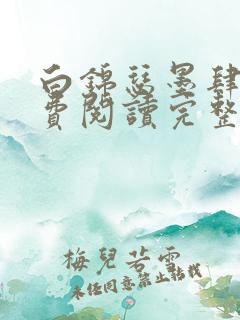 白錦瑟墨肆
費閱讀完整
梅兒若雪
未經同意禁止轉載